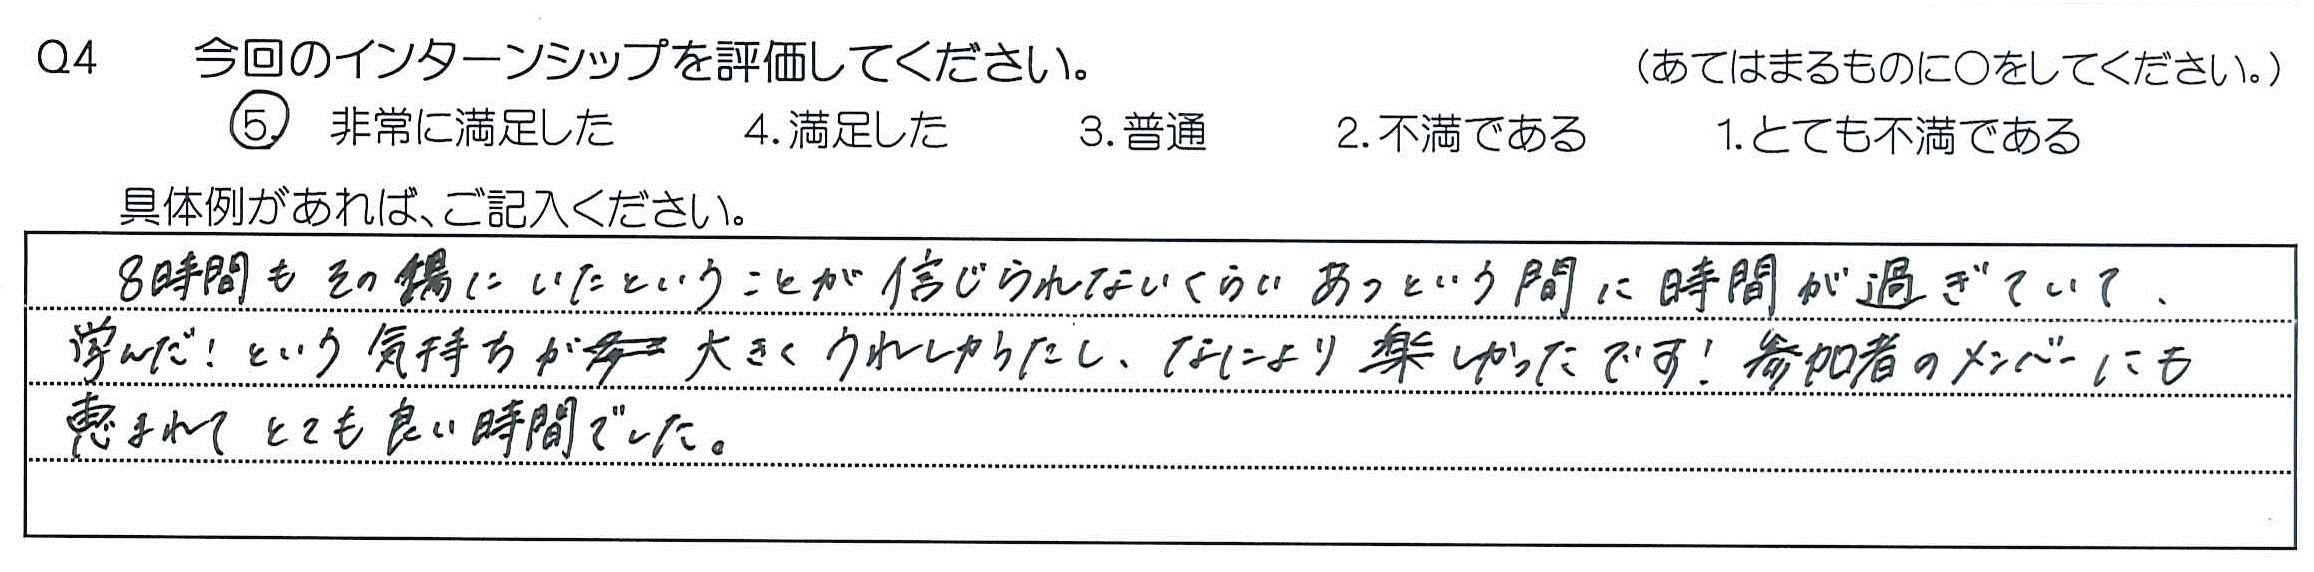 Q4 今回のインターンシップを評価してください。 (あてはまるものに○をしてください。)
5. 非常に満足した 4.満足した 3.普通 2.不満である 1.とても不満である
具体例があれば、ご記入ください。
8時間もその場にいたということが信じられないくらいあっという間に時間が過ぎていて、
学んだ!という気持ちが大きくうれしかったし、なにより楽しかったです!参加者のメンバーにも
恵まれてとても良い時間でした。